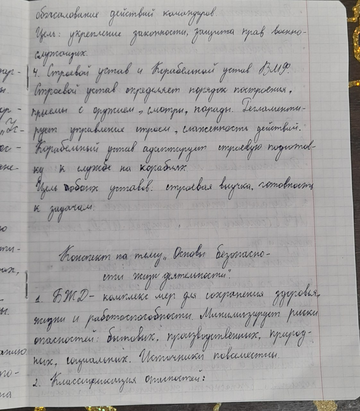 обжалование действий командиров.
Цели: укрепление законности, защита прав военно-
служащих.
4. Строевой устав и Корабельный устав ВМФ.
Строевой устав определяет порядок построения,
приемы с оружием, смотры, парады. Регламенти-
рует управление строем, слаженность действий.
Корабельный устав адаптирует строевую подготов-
ку к службе на кораблях
Цели обоих уставов: строевая выучка, готовность
к задачам.
Конспект на тему „Основы безопасно-
сти жизнедеятельности".
1. БЖД - комплекс мер для сохранения здоровья,
жизни и работоспособности. Минимизирует риски
опасностей: бытовых, производственных, природ-
ных, социальных. Источники
2. Классификация опасностей: